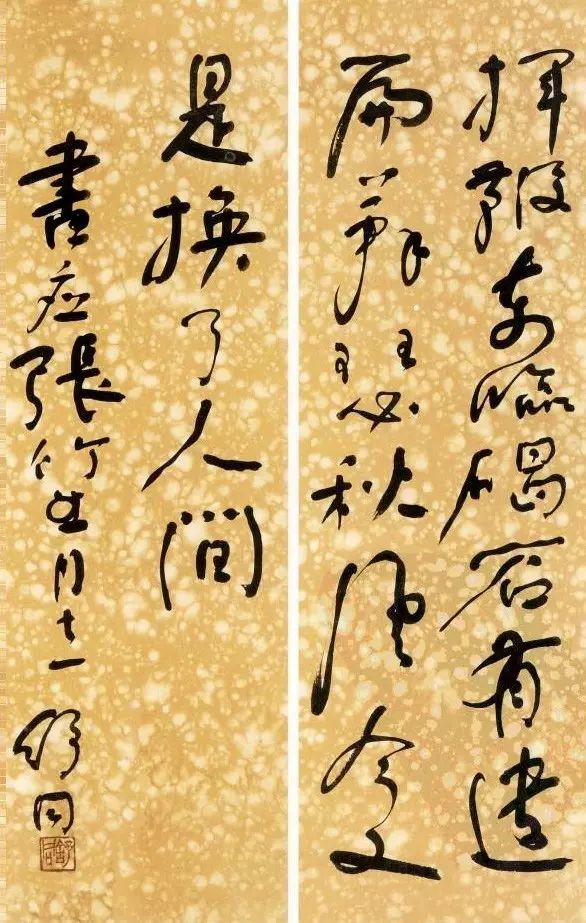 揮鞭東臨碣石有遺
篇蕭瑟秋風今又
是換了人間
書应張竹生同志 舒同